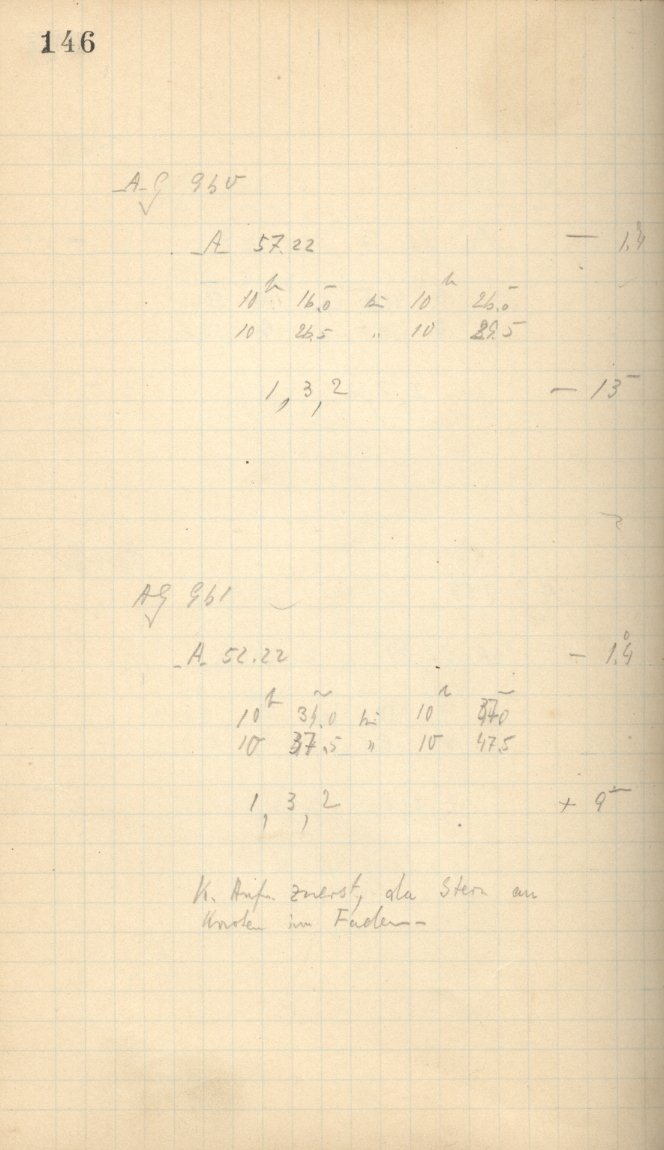 146
AG 960
A 57.22 — 1.4
10h 16.0 bis 10h 26.0
10 26.5 " 10 29.5
1, 3, 2 — 13
AG 961
A. 52.22 — 1.4
10h 34.0 bis 10h 37.0
10 37.5 " 10 47.5
1, 3, 2 + 9
K. Aufn. zuerst, da Stern an
Knoten im Faden